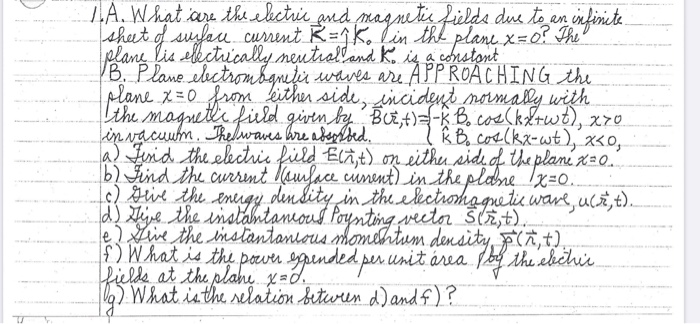 1. A. What are the electric and magnetic fields due to an infinite
sheet of surface current K⃗ = ĵ K₀ in the plane x=0? The
plane is electrically neutral and K₀ is a constant
B. Plane electromagnetic waves are APPROACHING the
plane x=0 from either side, incident normally with
the magnetic field given by B⃗(r⃗,t) = { -k̂ B₀ cos(kx+ωt), x>0
in vacuum. The waves are absorbed. { k̂ B₀ cos(kx-ωt), x<0,
a) Find the electric field E⃗(r⃗,t) on either side of the plane x=0.
b) Find the current (surface current) in the plane x=0.
c) Give the energy density in the electromagnetic wave, u(r⃗,t).
d) Give the instantaneous Poynting vector S⃗(r⃗,t).
e) Give the instantaneous momentum density p⃗(r⃗,t)
f) What is the power expended per unit area by the electric
fields at the plane x=0.
g) What is the relation between d) and f)?